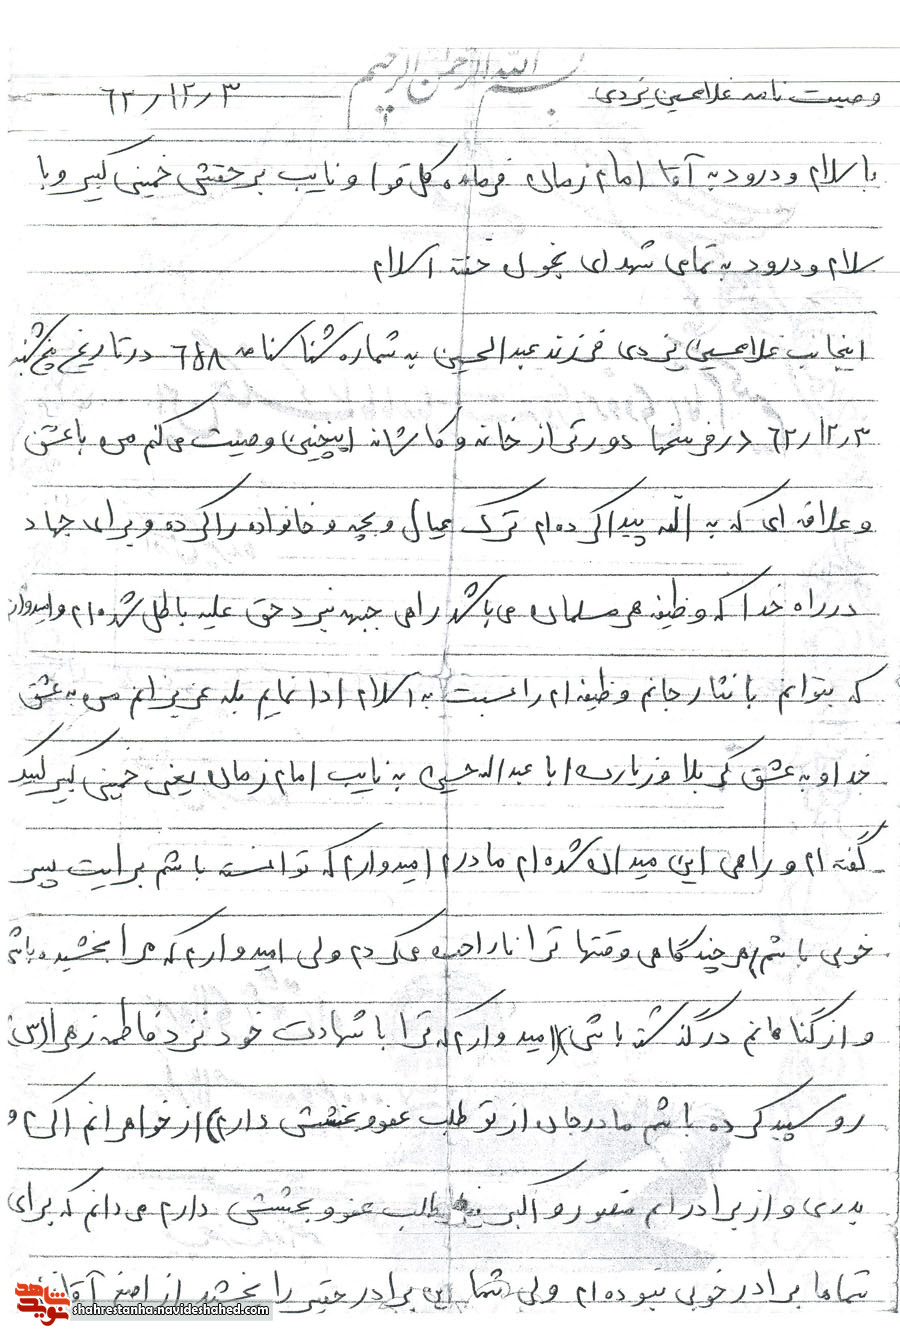 بسم الله الرحمن الرحیم
وصیت نامه غلامحسین یزدی ۶۲/۱۲/۳
باسلام و درود به آقا امام زمان فرمانده کل قوا و نایب بر حقش خمینی کبیر و با
سلام و درود به تمامی شهدای بخون خفتهٔ اسلام
اینجانب غلامحسین یزدی فرزند عبدالحسین به شماره شناسنامه ۶۵۸ در تاریخ پنج شنبه
۶۲/۱۲/۳ در فرسخها دورتر از خانه و کاشانه اینچنین وصیت می کنم من با عشق
و علاقه ای که به الله پیدا کرده ام ترک عیال و بچه و خانواده را کرده و برای جهاد
در راه خدا که وظیفه هر مسلمان می باشد راهی جبهه نبرد حق علیه باطل شده ام و امیدوارم
که بتوانم با نثار جانم وظیفه ام را نسبت به اسلام ادا نمایم بله عزیزانم من به عشق
خدا و به عشق کربلا و زیارت ابا عبدالله حسین به نایب امام زمان یعنی خمینی کبیر لبیک
گفته ام و راهی این میدان شده ام مادرم امیدوارم که توانسته باشم برایت پسر
خوبی باشم هر چند گاهی وقتها ترا ناراحت می کردم ولی امیدوارم که مرا بخشیده باشی
و از گناهانم در گذشته باشی (امیدوارم که ترا با شهادت خود نزد فاطمه زهرا (س)
رو سپید کرده باشم مادرجان از تو طلب عفو و بخشش دارم) از خواهرانم اکرم و
پدری و از برادرانم منصور و اکبر نیز طالب عفو و بخشش دارم می دانم که برای
شماها برادر خوبی نبوده ام ولی شما این برادر حقیر را بخشید از اصغر آقا
نوید شاهد
shahrestanha.navideshahed.com